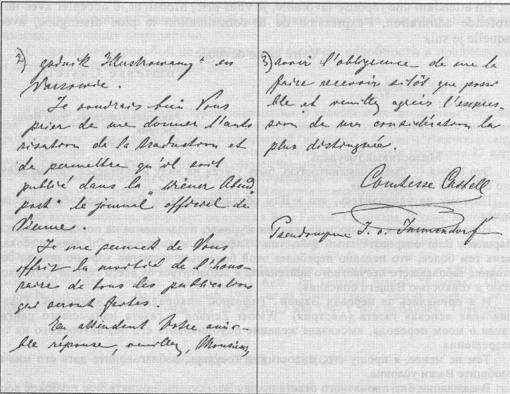 2) godnik Illustrowany" en
Varsovie.
Je voudrais bien Vous
prier de me donner l'auto
risation de la traduction et
de permettre qu'il soit
publié dans la "Wiener Abend
post" le journal officiel de
Vienne.
Je me permet de Vous
offrir la moitié de l'hono-
raire de tous des publications
qui seront faites.
En attendent Votre aima-
ble réponse, veuillez, Monsieur,
3) avoir l'obligence de me la
faire recevoir sitôt que possi
ble et veuillez agréer l'expres-
sion de ma considération la
plus distinguée.
Comtesse Castell
Pseudonyme